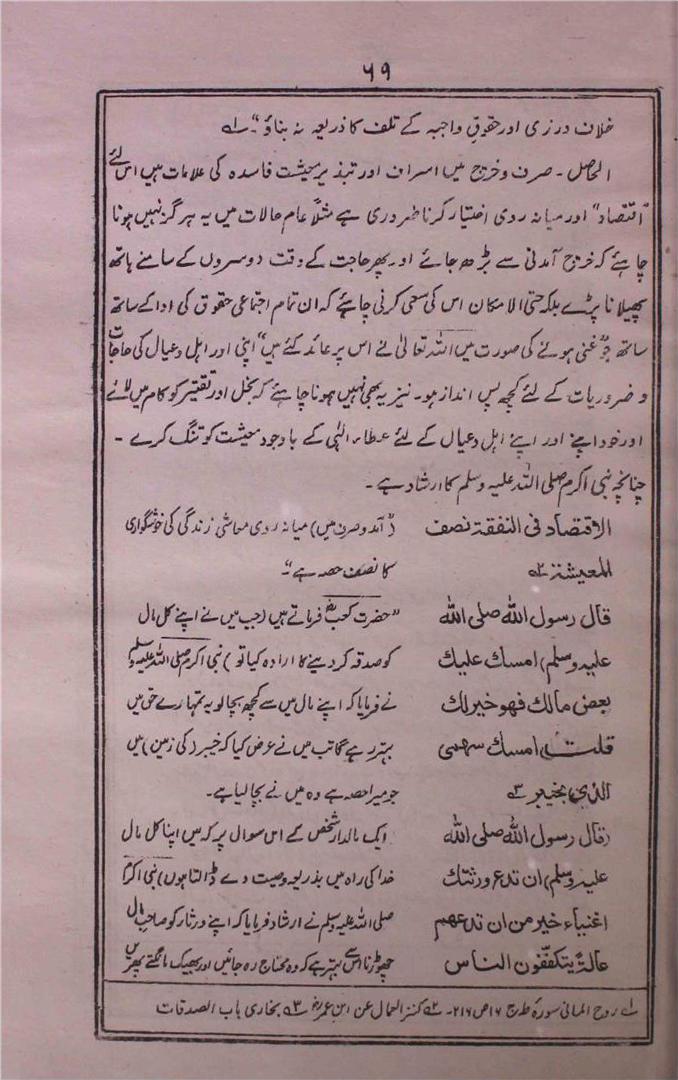 ۶۹
خلاف ورزی اور حقوقِ واجبہ کے تلف کا ذریعہ نہ بناؤ"۔ ۱؎
الحاصل۔ صرف و خرچ میں اسراف اور تبذیر معیشت فاسدہ کی علامات ہیں اس لئے
"اقتصاد" اور میانہ روی اختیار کرنا ضروری ہے مثلاً عام حالات میں یہ ہرگز نہیں ہونا
چاہئے کہ خرچ آمدنی سے بڑھ جائے اور پھر حاجت کے وقت دوسروں کے سامنے ہاتھ
پھیلانا پڑے بلکہ حتی الامکان اس کی سعی کرنی چاہئے کہ ان تمام اجتماعی حقوق کی ادا کے ساتھ
ساتھ جو "غنی ہونے کی صورت میں اللہ تعالیٰ نے اس پر عائد کئے ہیں" اپنی اور اہل و عیال کی حاجات
و ضروریات کے لئے کچھ پس انداز ہو۔ نیز یہ بھی نہیں ہونا چاہئے کہ بخل اور تقتیر کو کام میں لائے
اور خود اپنے اور اپنے اہل و عیال کے لئے عطاء الٰہی کے باوجود معیشت کو تنگ کرے۔
چنانچہ نبی اکرم صلی اللہ علیہ وسلم کا ارشاد ہے۔
الاقتصاد فی النفقة نصف (آمد و صرف میں) میانہ روی معاشی زندگی کی خوشگواری
المعیشة ۲؎ کا نصف حصہ ہے"۔
قال رسول اللہ صلی اللہ "حضرت کعبؓ فرماتے ہیں (جب میں نے اپنے کل مال
علیہ وسلم) امسك علیك کو صدقہ کر دینے کا ارادہ کیا تو) نبی اکرم صلی اللہ علیہ وسلم
بعض مالك فھو خیر لك نے فرمایا کہ اپنے مال میں سے کچھ بچا لو یہ تمہارے حق میں
قلت امسك سھمی بہتر رہے گا تب میں نے عرض کیا کہ خیبر (کی زمین) میں
الذی بخیبر ۳؎ جو میرا حصہ ہے وہ میں نے بچا لیا ہے۔
(قال رسول اللہ صلی اللہ ایک مالدار شخص کے اس سوال پر کہ میں اپنا کل مال
علیہ وسلم) ان تدع ورثتك خدا کی راہ میں بذریعہ وصیت دے ڈالتا ہوں) نبی اکرم
اغنیاء خیر من ان تدعھم صلی اللہ علیہ وسلم نے ارشاد فرمایا کہ اپنے ورثاء کو صاحبِ مال
عالةً یتکففون الناس چھوڑنا اس سے بہتر ہے کہ وہ محتاج رہ جائیں اور بھیک مانگتے پھریں
۱؎ روح المعانی سورۂ طٰہٰ ج ۱۶ ص ۲۱۶۔ ۲؎ کنز العمال عن ابن عمرؓ ۳؎ بخاری باب الصدقات